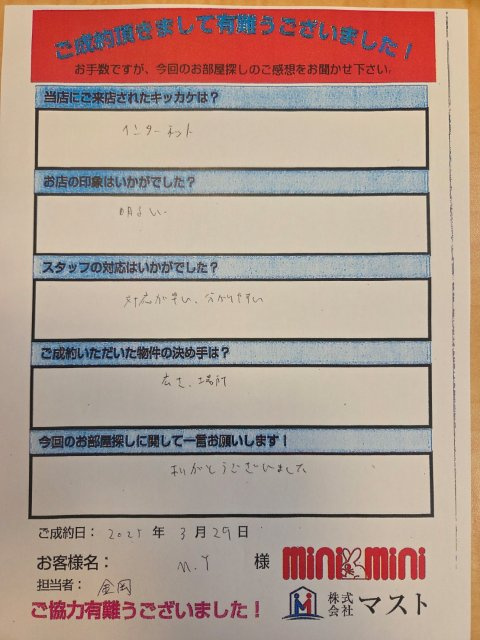 ご成約頂きまして有難うございました！
お手数ですが、今回のお部屋探しのご感想をお聞かせ下さい。
当店にご来店されたキッカケは？
インターネット
お店の印象はいかがでした？
明るい。
スタッフの対応はいかがでした？
対応が早い、分かりやすい
ご成約いただいた物件の決め手は？
広さ、場所
今回のお部屋探しに関して一言お願いします！
ありがとうございました
ご成約日： 2025 年 3 月 29 日
お客様名： n.Y 様
mini mini
担当者： 金岡
株式会社 マスト
ご協力有難うございました！